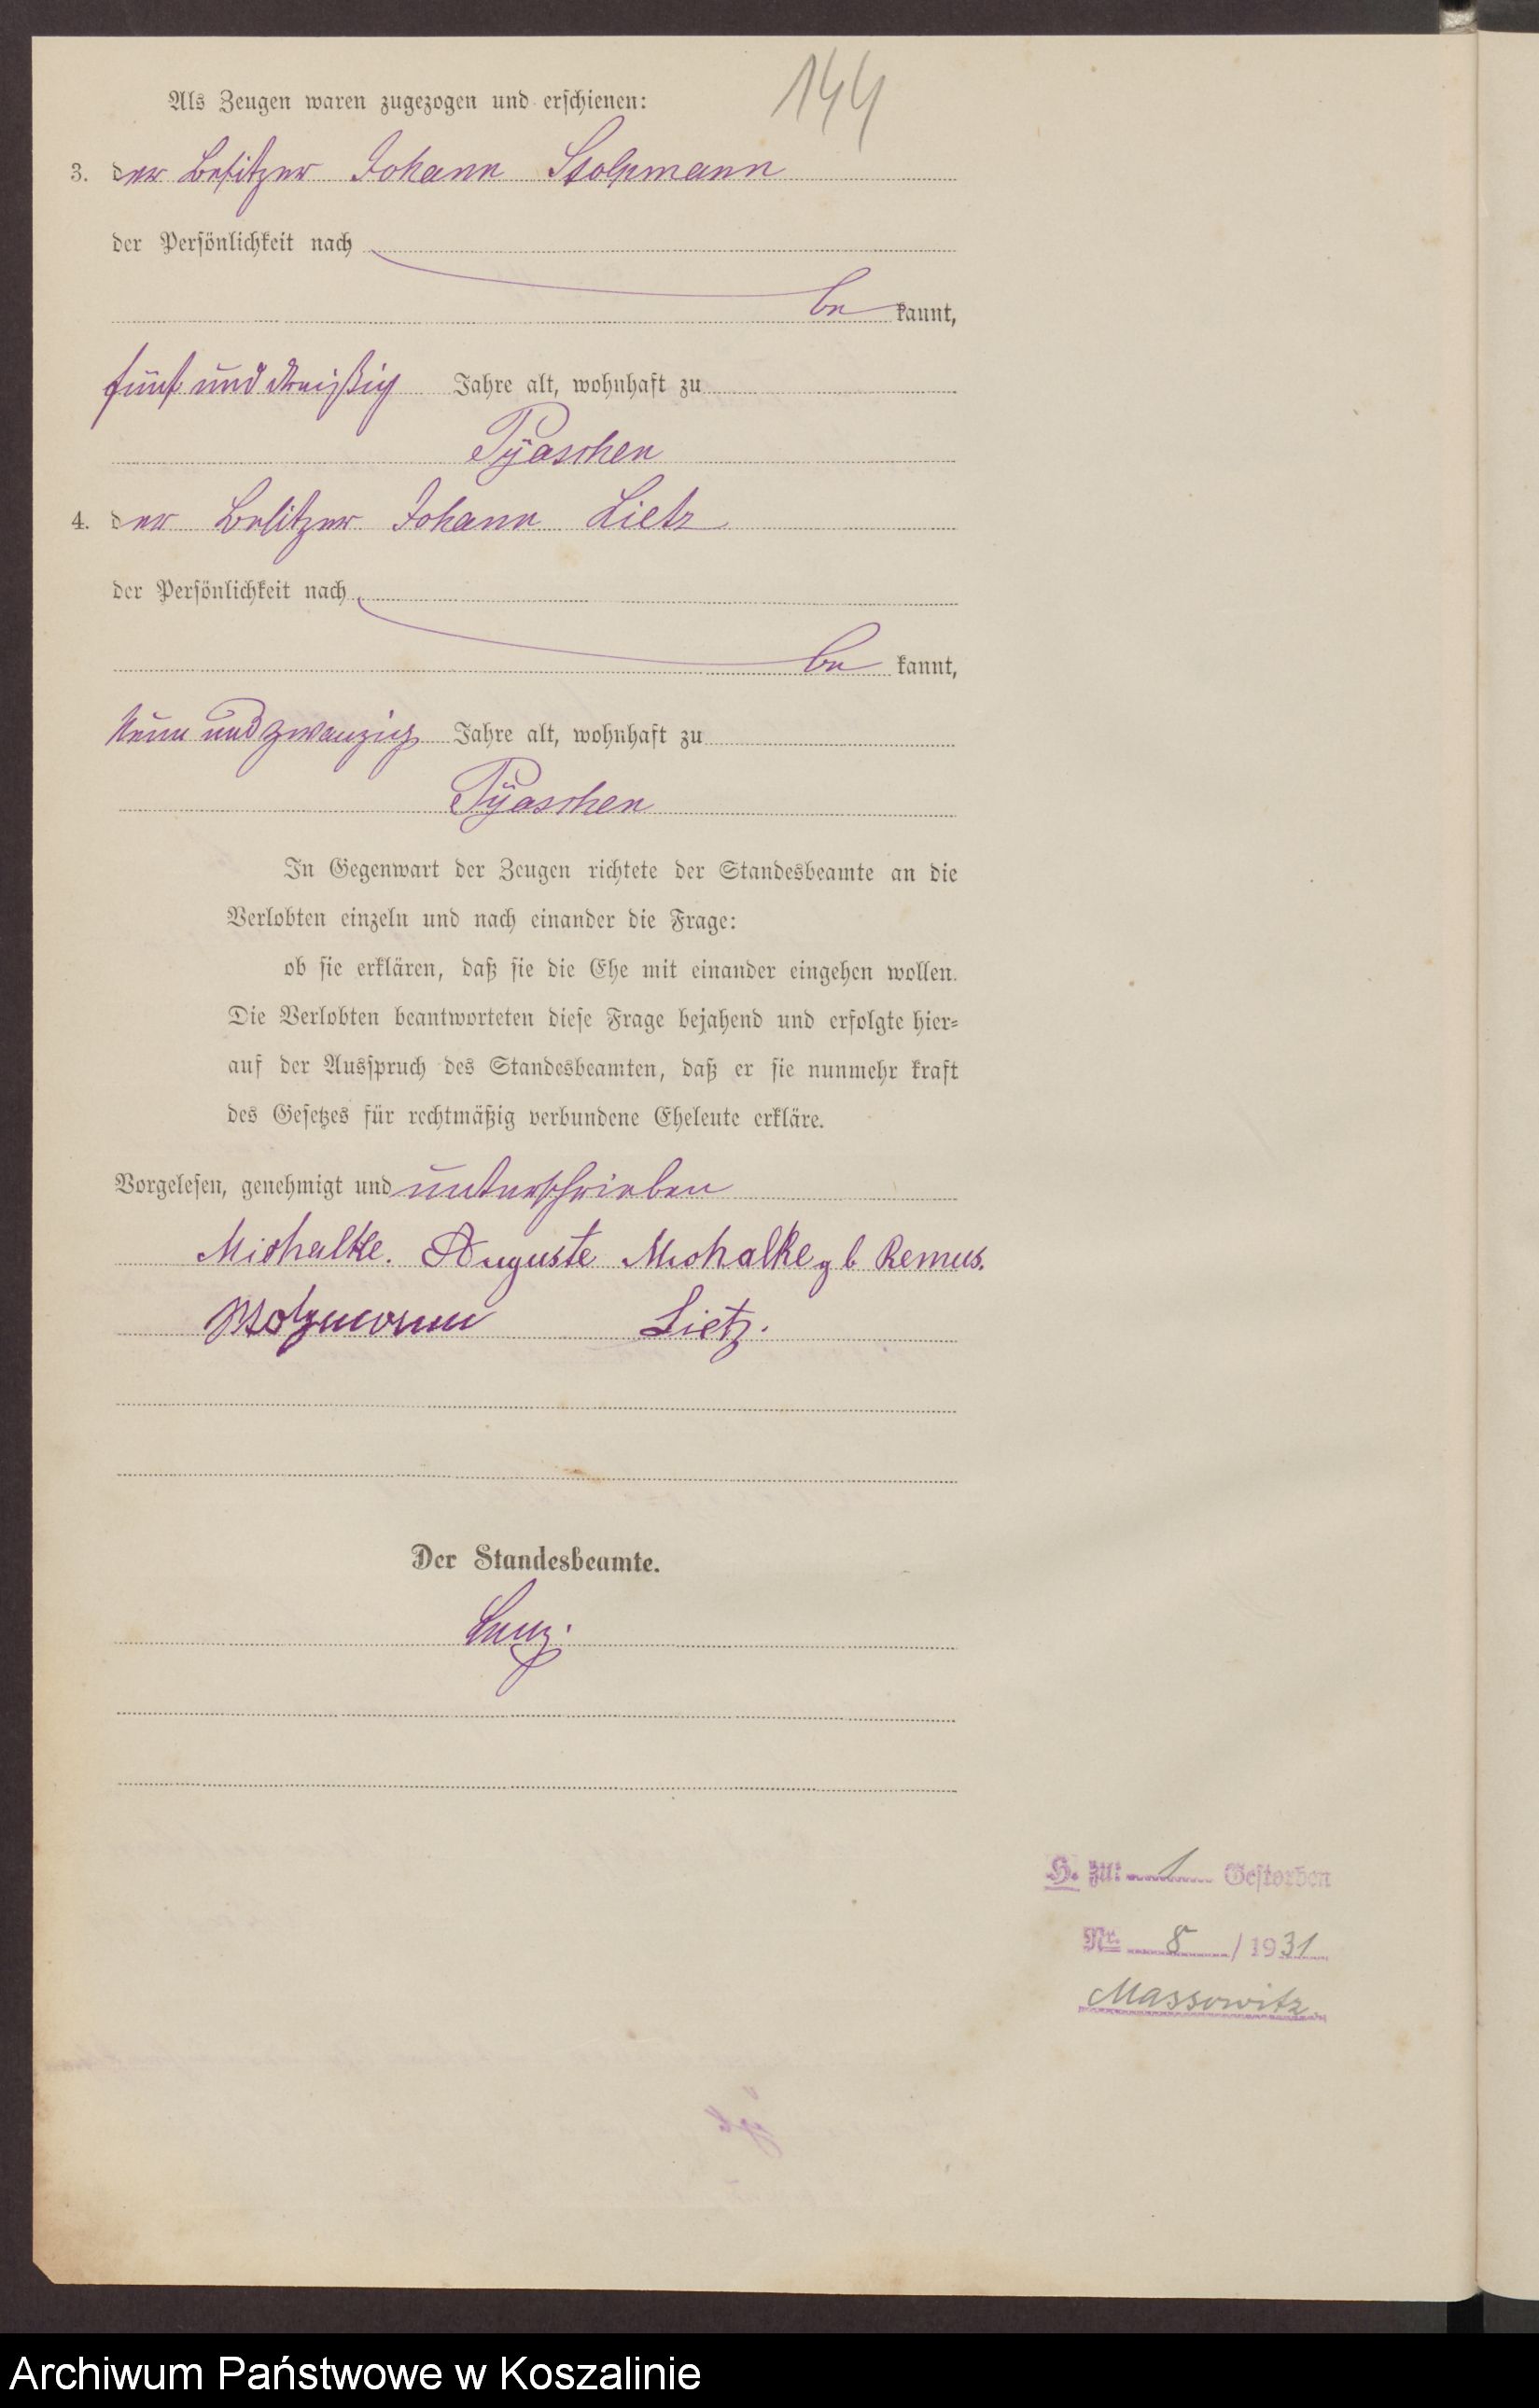 144
Als Zeugen waren zugezogen und erschienen:
3. der Besitzer Johann Stolpmann
der Persönlichkeit nach
be kannt,
fünf und dreißig Jahre alt, wohnhaft zu
Pyaschen
4. der Besitzer Johann Lietz
der Persönlichkeit nach
be kannt,
neun und zwanzig Jahre alt, wohnhaft zu
Pyaschen
In Gegenwart der Zeugen richtete der Standesbeamte an die
Verlobten einzeln und nach einander die Frage:
ob sie erklären, daß sie die Ehe mit einander eingehen wollen.
Die Verlobten beantworteten diese Frage bejahend und erfolgte hier=
auf der Ausspruch des Standesbeamten, daß er sie nunmehr kraft
des Gesetzes für rechtmäßig verbundene Eheleute erkläre.
Vorgelesen, genehmigt und unterschrieben
Michalke. Auguste Michalke gb Remus.
Stolpmann Lietz.
Der Standesbeamte.
H. zu: 1 Gestorben
Nr. 8 / 1931
Massowitz
Archiwum Państwowe w Koszalinie